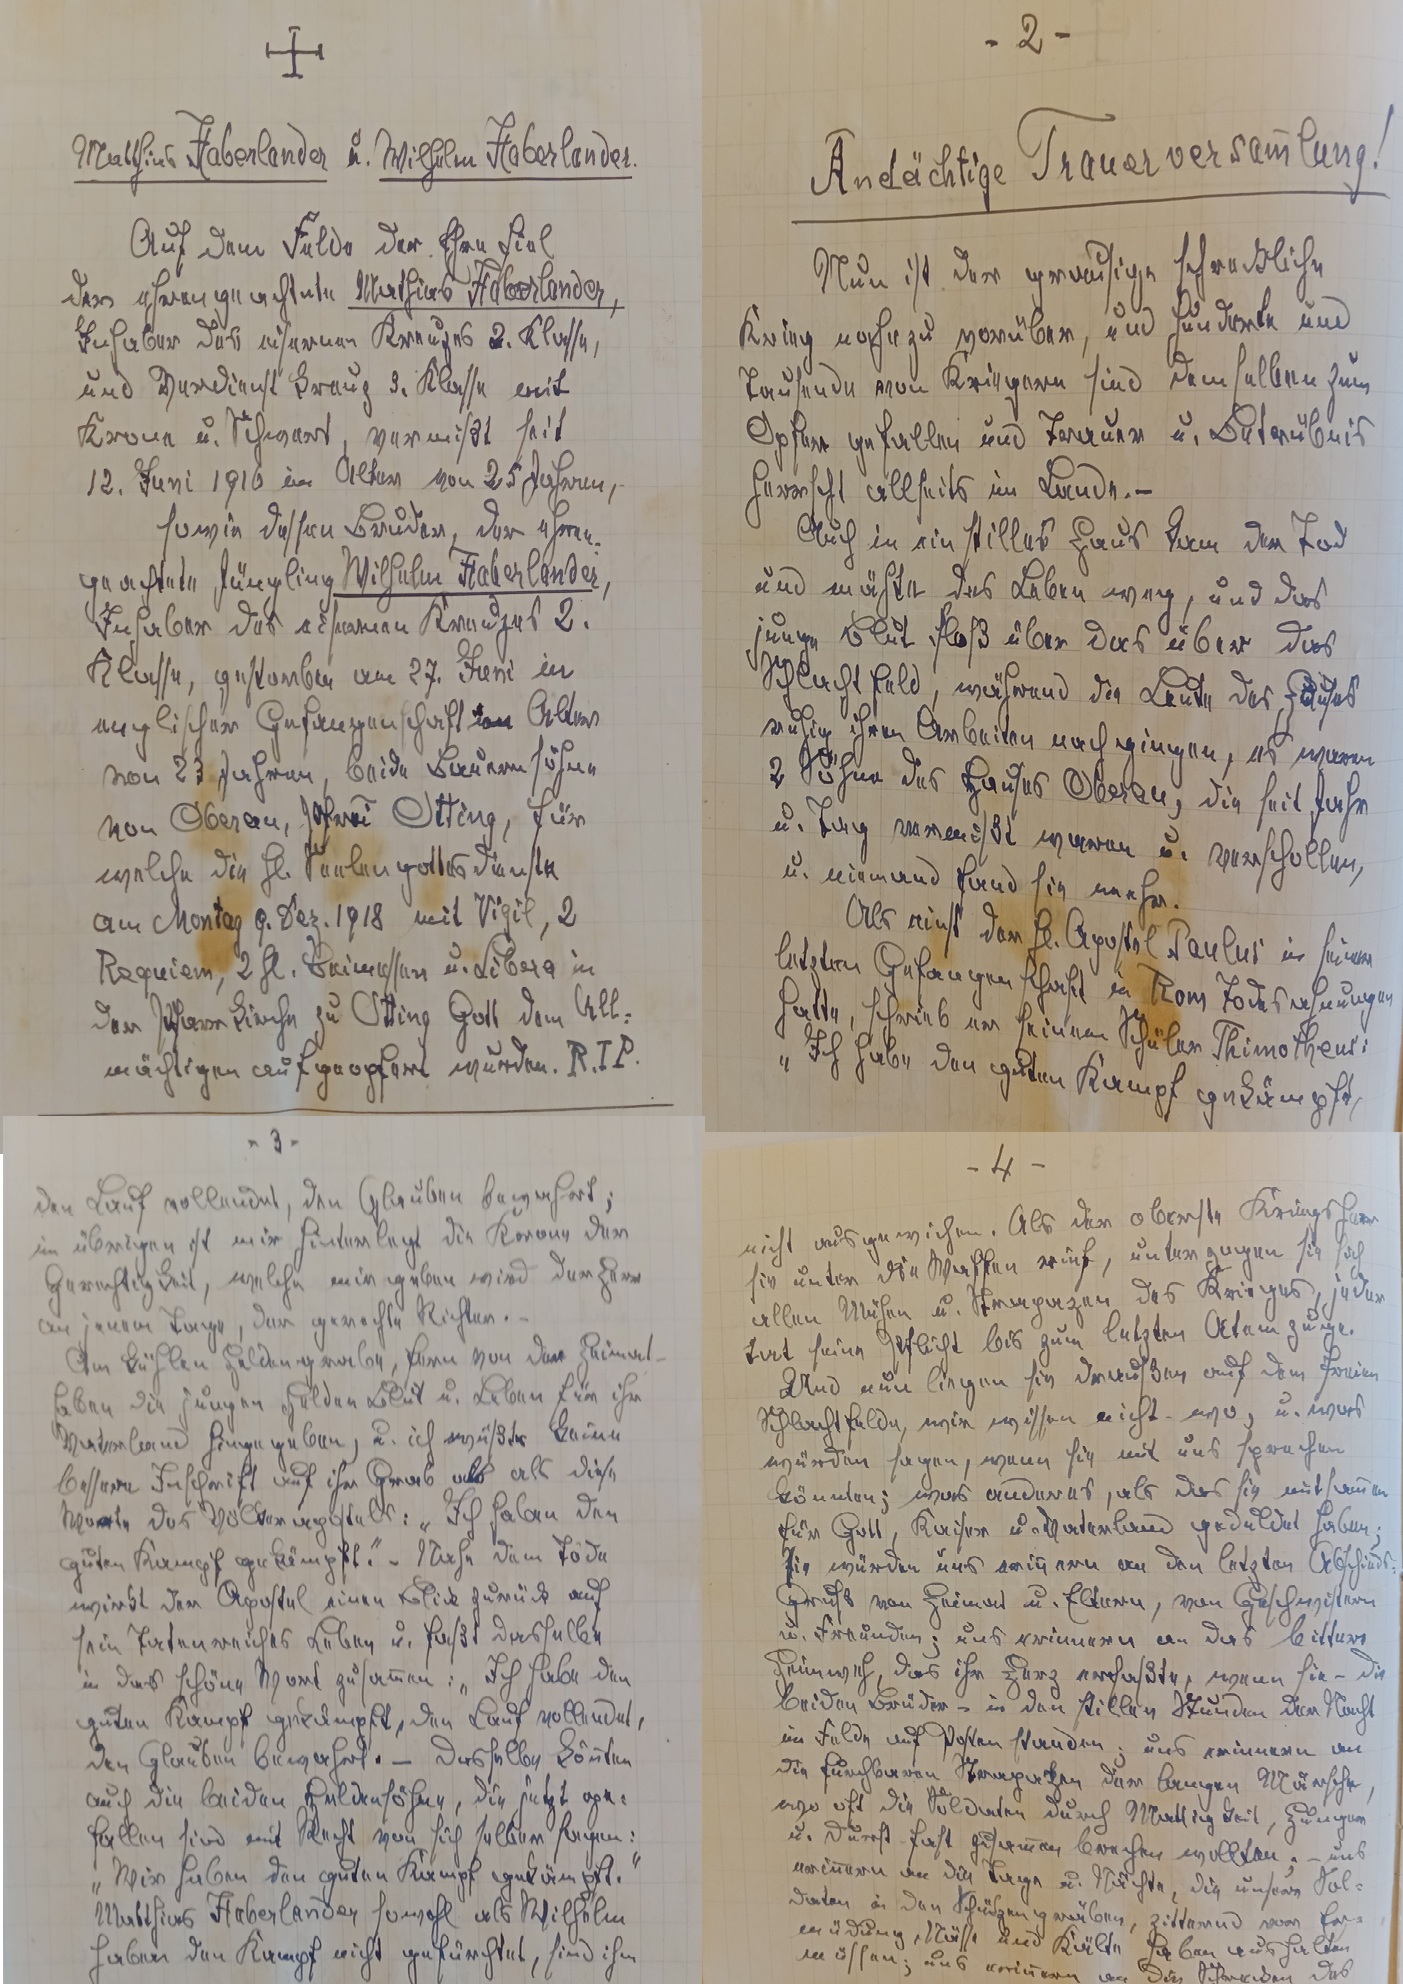 Matthias Haberlander u. Wilhelm Haberlander.
Auf dem Felde der Ehre fiel
der ehrengeachtete Mathias Haberlander,
Inhaber des eisernen Kreuzes 2. Klasse,
und Verdienst Kreuz 3. Klasse mit
Krone u. Schwert, vermißt seit
12. Juni 1916 im Alter von 25 Jahren,
sowie dessen Bruder, der ehren-
geachtete Jüngling Wilhelm Haberlander,
Inhaber des eisernen Kreuzes 2.
Klasse, gestorben am 27. Juni in
englischer Gefangenschaft im Alter
von 23 Jahren, beide Bauernsöhne
von Oberau, Pfrei Otting, für
welche die hl. Seelengottesdienste
am Montag 9. Dez. 1918 mit Vigil, 2
Requiem, 2 hl. Beimessen u. Libera in
der Pfarrkirche zu Otting Gott dem All-
mächtigen aufgeopfert wurden. R.I.P.
- 2 -
Andächtige Trauerversam̅lung!
Nun ist der grausige schreckliche
Krieg nahezu vorüber, und Hunderte und
Tausende von Kriegern sind demselben zum
Opfer gefallen und Trauer u. Betrübnis
herrscht allseits im Lande.-
Auch in ein stilles Haus kam der Tod
und mähte das Leben weg, und das
junge Blut floß über das über das
Schlachtfeld, während die Leute des Hauses
ruhig ihren Arbeiten nachgingen, es waren
2 Söhne des Hauses Oberau, die seit Jahr
u. Tag vermißt waren u. verschollen,
u. niemand fand sie mehr.
Als einst der hl. Apostel Paulus in seiner
letzten Gefangenschaft in Rom Todesahnungen
hatte, schrieb er seinem Schüler Thimotheus:
„Ich habe den guten Kampf gekämpft,
- 3 -
den Lauf vollendet, den Glauben bewahrt;
im übrigen ist mir hinterlegt die Korone der
Gerechtigkeit, welche mir geben wird der Herr
an jenem Tage, der gerechte Richter.-
Am kühlen Heldengrabe, fern von der Heimat
haben die jungen Helden Blut u. Leben für ihr
Vaterland hingegeben, u. ich wüßte keine
bessere Inschrift auf ihr Grab als als diese
Worte des Völkerapostels: „Ich haben den
guten Kampf gekämpft." - Nahe dem Tode
wirft der Apostel einen Blick zurück auf
sein Tatenreiches Leben u. faßt dasselbe
in das schöne Wort zusam̅en: „Ich habe den
guten Kampf gekämpft, den Lauf vollendet,
den Glauben bewahrt. - Dasselbe kön̅ten
auch die beiden Heldensöhne, die jetzt ge-
fallen sind mit Recht von sich selber sagen:
„Wir haben den guten Kampf gekämpft."
Matthias Haberlander sowohl als Wilhelm
haben den Kampf nicht gefürchtet, sind ihm
- 4 -
nicht ausgewichen. Als der oberste Kriegsherr
sie unter die Waffen rief, unterzogen sie sich
allen Mühen u. Strapazen des Krieges, jeder
tat seine Pflicht bis zum letzten Atemzuge.
Und nun liegen sie draußen auf dem freien
Schlachtfelde, wir wissen nicht - wo, u. was
würden sagen, wenn sie mit uns sprechen
könnten; was anderes, als das sie mitsam̅en
für Gott, Kaiser u. Vaterland geduldet haben;
Sie würden uns erin̅ern an den letzten Abschieds-
Gruß von Heimat u. Eltern, von Geschwistern
u. Freunden; uns erinnern an das bittere
Heimweh, das ihr Herz erfaßte, wenn sie - die
beiden Brüder - in den stillen Stunden der Nacht
im Felde auf Posten standen; uns erinnern an
die furchbaren Strapazen der langen Märsche,
wo oft die Soldaten durch Mattigkeit, Hunger
u. Durst fast zusam̅enbrechen wollten; - uns
erin̅ern an die Tage u. Nächte, die unsere Sol-
daten in den Schützengräben, zitternd vor Er-
müdung, Nässe und Kälte haben aushalten
müssen; uns erin̅ern an die Schrecken des